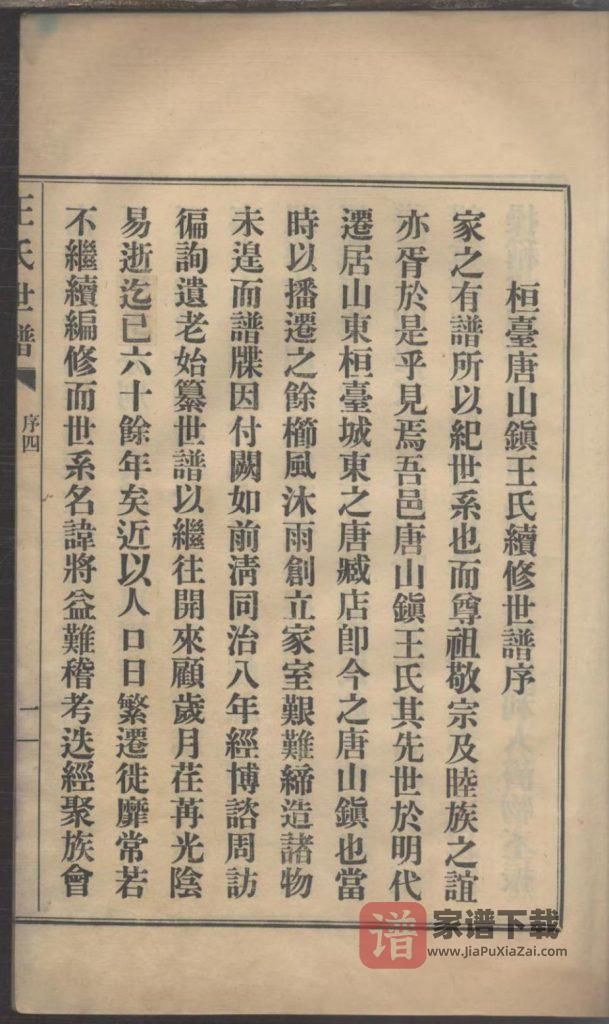 桓臺唐山鎮王氏續修世譜序
家之有譜所以紀世系也而尊祖敬宗及睦族之誼
亦胥於是乎見焉吾邑唐山鎮王氏其先世於明代
遷居山東桓臺城東之唐臧店卽今之唐山鎮也當
時以播遷之餘櫛風沐雨創立家室艱難締造諸物
未遑而譜牒因付闕如前淸同治八年經博諮周訪
徧詢遺老始纂世譜以繼往開來顧歲月荏苒光陰
易逝迄已六十餘年矣近以人口日繁遷徙靡常若
不繼續編修而世系名諱將益難稽考迭經聚族會
王氏世譜
序四
一
谱
家谱下载
www.JiaPuXiaZai.com